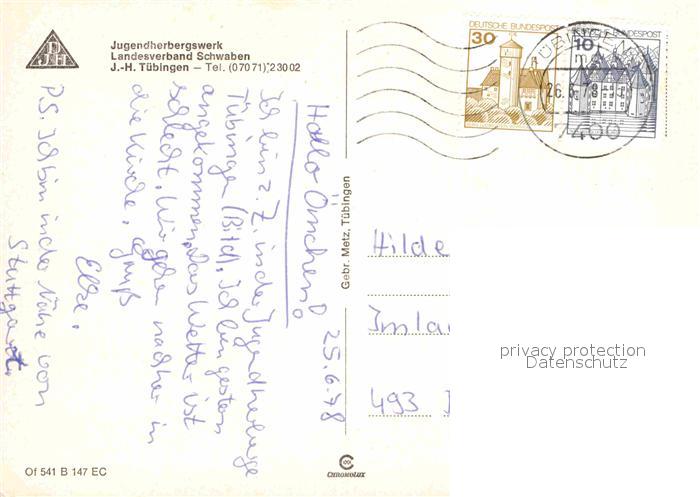 DJH
Jugendherbergswerk
Landesverband Schwaben
J.-H. Tübingen – Tel. (07071) 23002
DEUTSCHE BUNDESPOST
30
DEUTSCHE BUNDESPOST
10
TÜBINGEN
26.6.78
7400
Hallo Ömchen! 25.6.78
Ich bin z. Z. in der Jugendherberge
Tübingen (Bild). Ich bin gestern
angekommen. Das Wetter ist
schlecht. Wir gehen nachher in
die Kirche. Gruß
Elke.
P.S. Ich bin in der Nähe von
Stuttgart.
Gebr. Metz, Tübingen
Hilde
Imla
493
privacy protection
Datenschutz
Of 541 B 147 EC
CHROMOLUX